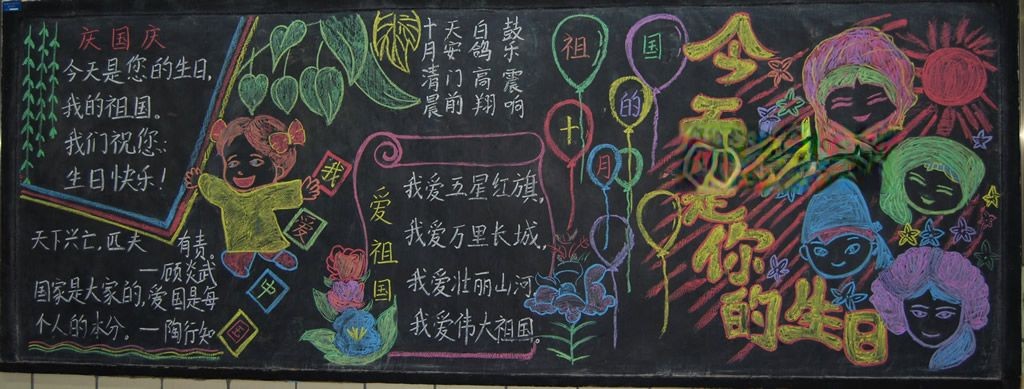 庆国庆
今天是您的生日,
我的祖国。
我们祝您:
生日快乐!
天下兴亡,匹夫 有责。
—顾炎武
国家是大家的,爱国是每
个人的本分。—陶行知
我
爱
中
国
鼓乐震响
白鸽高翔
天安门前
十月清晨
爱祖国
我爱五星红旗,
我爱万里长城,
我爱壮丽山河
我爱伟大祖国。
祖国
的
十月
今天是你的生日